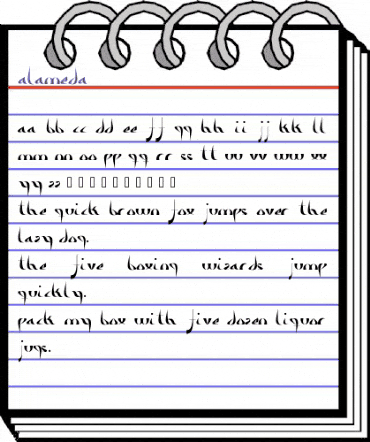 alameda
aa bb cc dd ee ff gg hh ii jj kk ll
mm nn oo pp qq rr ss tt uu vv ww xx
yy zz
the quick brown fox jumps over the
lazy dog.
the five boxing wizards jump
quickly.
pack my box with five dozen liquor
jugs.